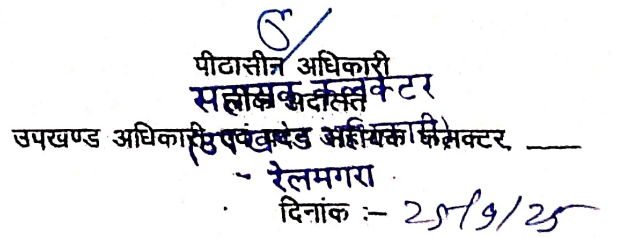 पीठासीन अधिकारी
सहायक कलक्टर
लोक अदालत
उपखण्ड अधिकारी एवं सहायक कलक्टर
(उपखण्ड अधिकारी)
- रेलमगरा
दिनांक :- 25/9/25